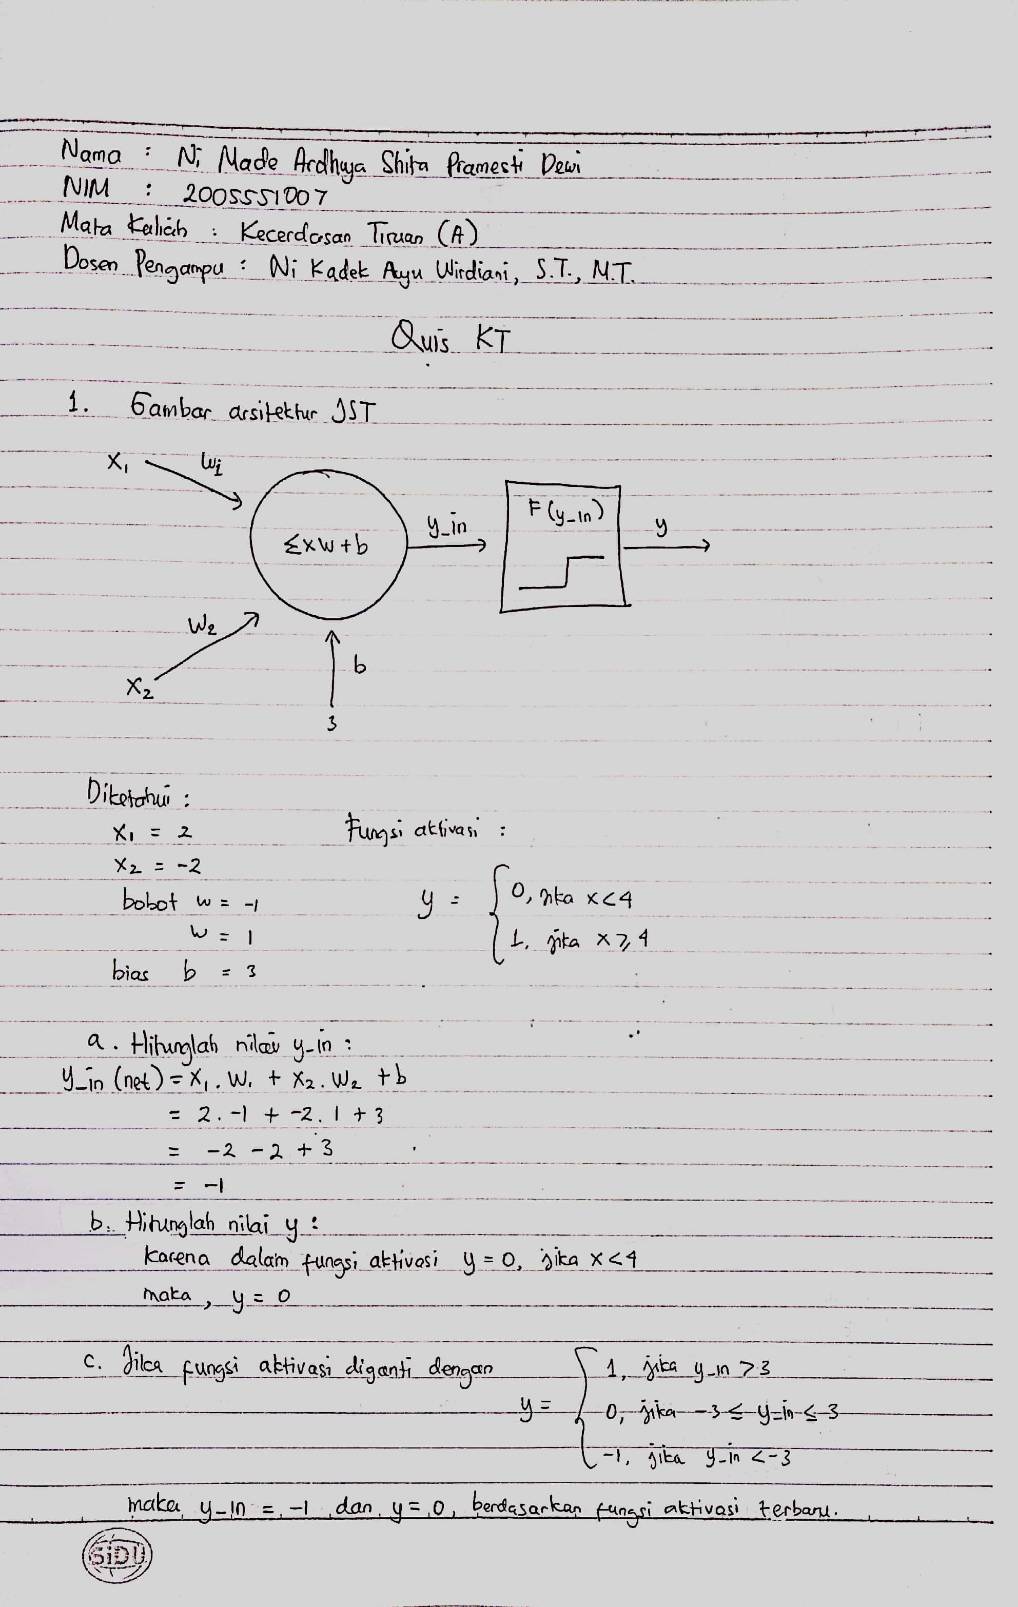 Nama : Ni Made Ardhya Shita Pramesti Dewi
NIM : 2005551007
Mata Kuliah : Kecerdasan Tiruan (A)
Dosen Pengampu : Ni Kadek Ayu Wirdiani, S.T., M.T.
Quis KT
1. Gambar arsitektur JST
X₁ W₁
Σxw+b
y_in
F(y_in)
y
W₂
X₂
b
3
Diketahui :
X₁ = 2
X₂ = -2
bobot w = -1
w = 1
bias b = 3
Fungsi aktivasi :
y = { 0, jika x<4
1, jika x ≥ 4
a. Hitunglah nilai y-in :
y_in (net) = X₁ . W₁ + X₂ . W₂ + b
= 2 . -1 + -2 . 1 + 3
= -2 - 2 + 3
= -1
b. Hitunglah nilai y :
Karena dalam fungsi aktivasi y = 0, jika x<4
maka, y = 0
c. Jika fungsi aktivasi diganti dengan
y = { 1, jika y_in > 3
0, jika -3 ≤ y-in ≤ 3
-1, jika y_in < -3
maka y_in = -1 dan y = 0, berdasarkan fungsi aktivasi terbaru.
SiDU